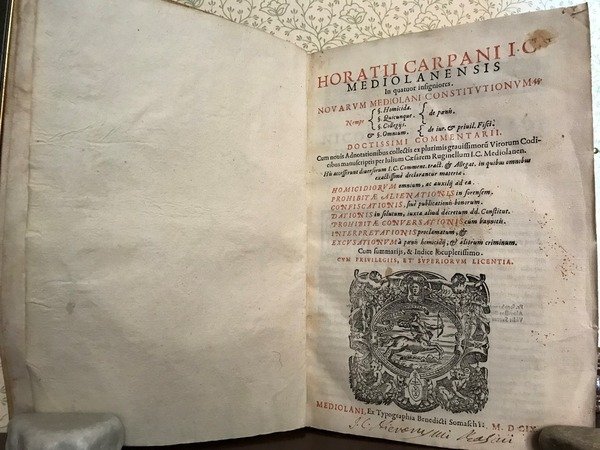 HORATII CARPANI I.C.
MEDIOLANENSIS
In quatuor insigniores.
NOVARVM MEDIOLANI CONSTITVTIONVM
§. Homicida.
Nempe §. Quicunque. de pœnis.
§. Collegijs.
& §. Omnium. de iur. & priuil. Fisci.
DOCTISSIMI COMMENTARII.
Cum nouis Adnotationibus collectis ex plurimis grauissimorū Virorum Codi-
cibus manuscriptis per Iulium Cæsarem Ruginellum I.C. Mediolanen.
His accesserunt diuersorum I.C. Comment. tract. & Allegat. in quibus omnibus
exactissimè declarantur materiæ.
HOMICIDIORVM omnium, ac auxilij ad ea.
PROHIBITÆ ALIENATIONIS in forensem.
CONFISCATIONIS, siuè publicationis bonorum.
DATIONIS in solutum, iuxta aliud decretum dd. Constitut.
PROHIBITÆ CONVERSATIONIS cum bannitis.
INTERPRETATIONIS proclamatum, &
EXCVSATIONVM à pœnis homicidij, & aliorum criminum.
Cum summarijs, & Indice locupletissimo.
CVM PRIVILEGIIS, ET SVPERIORVM LICENTIA.
MEDIOLANI, Ex Typographia Benedicti Somaschi: M. DCIX.